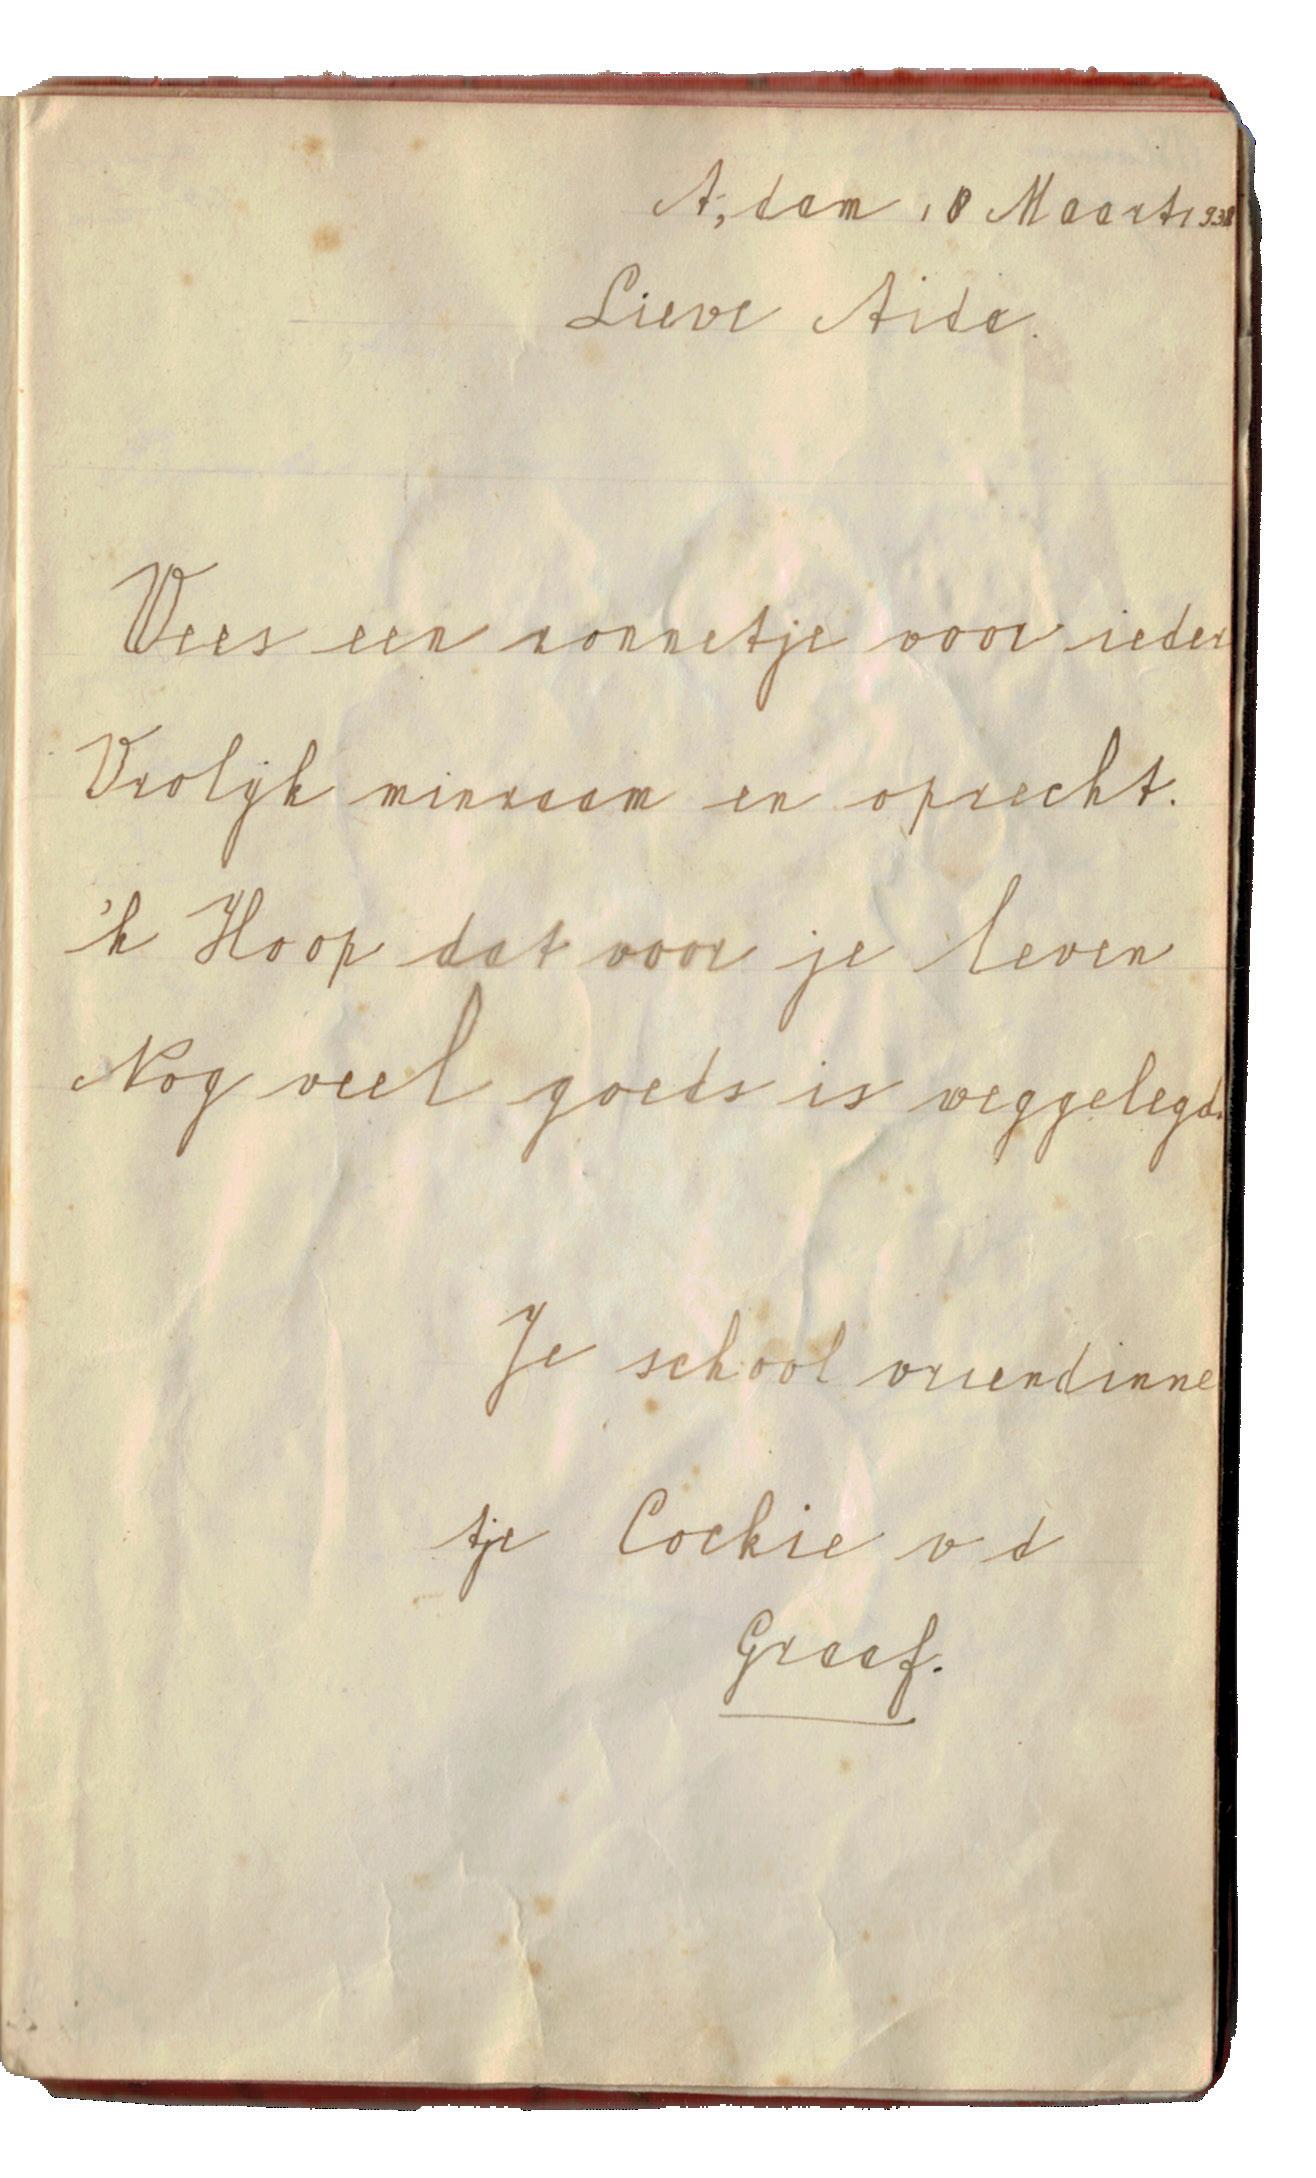 A,dam 18 Maart 1938
Lieve Aida.
Wees een zonnetje voor ieder
Vrolijk minzaam en oprecht.
'k Hoop dat voor je leven
Nog veel goeds is weggelegd.
Je school vriendinne
tje Cockie v d
Graaf.